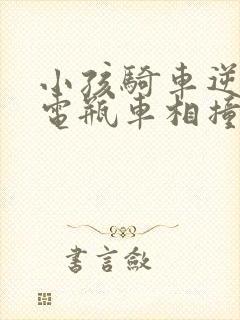 小孩騎車逆
電瓶車相撞
書言斂